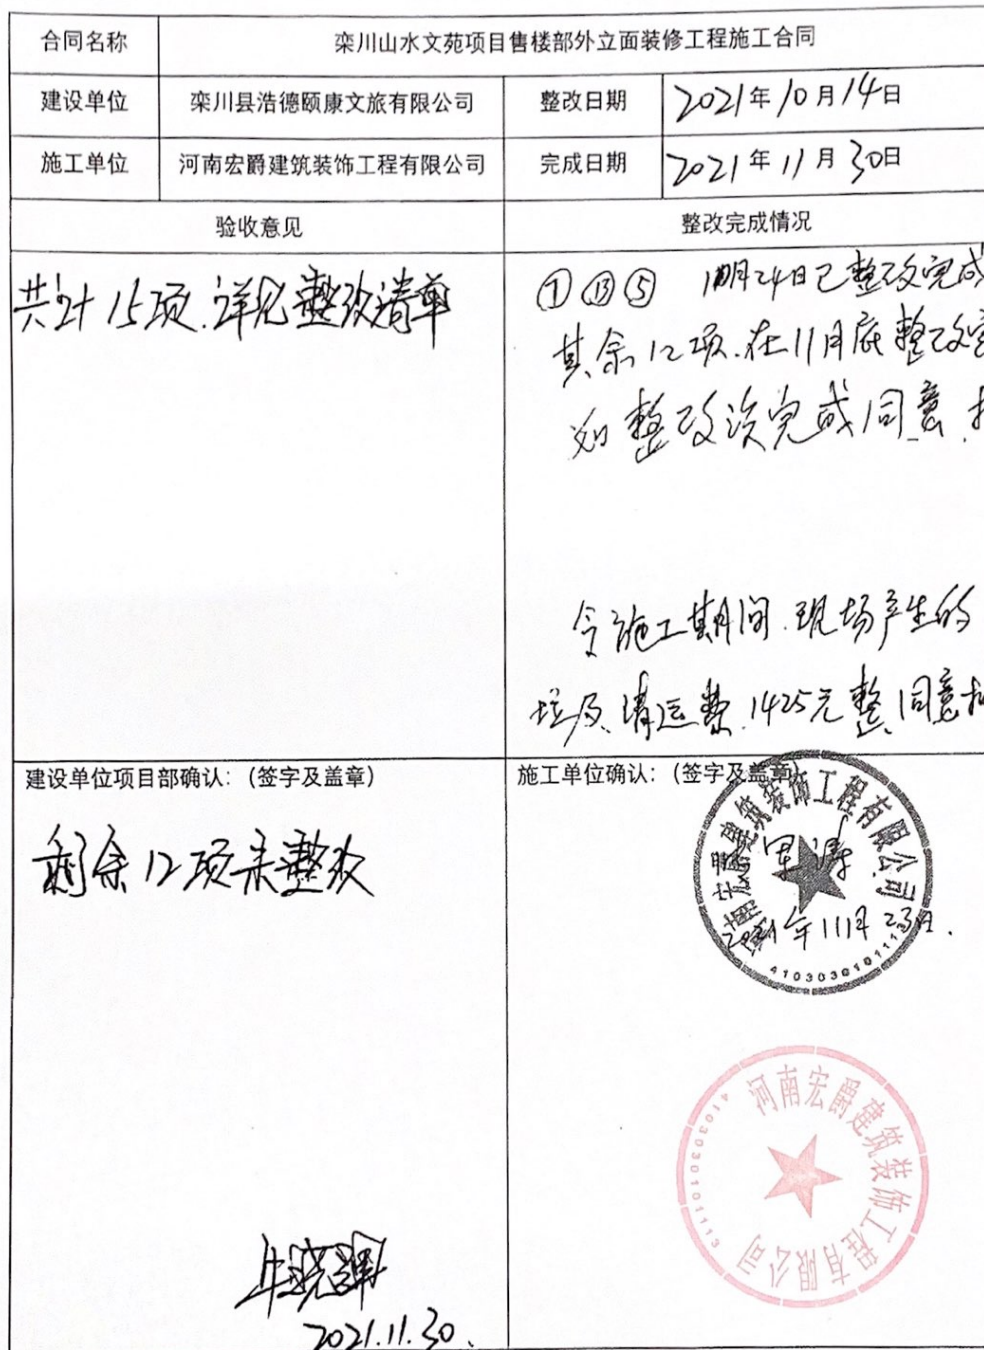 合同名称 栾川山水文苑项目售楼部外立面装修工程施工合同
建设单位 栾川县浩德颐康文旅有限公司 整改日期 2021年10月14日
施工单位 河南宏爵建筑装饰工程有限公司 完成日期 2021年11月30日
验收意见 整改完成情况
共计15项.详见整改清单
① ⑬ ⑤ 10月24日已整改完成
其余12项.在11月底整改完
如整改没完成同意.扣
令施工期间.现场产生的
垃圾.清运费.1425元整.同意扣
建设单位项目部确认：(签字及盖章) 施工单位确认：(签字及盖章)
剩余12项未整改
河南宏爵建筑装饰工程有限公司
2021年11月23日.
4103030101113
河南宏爵建筑装饰工程有限公司
4103030101113
牛晓辉
2021.11.30.